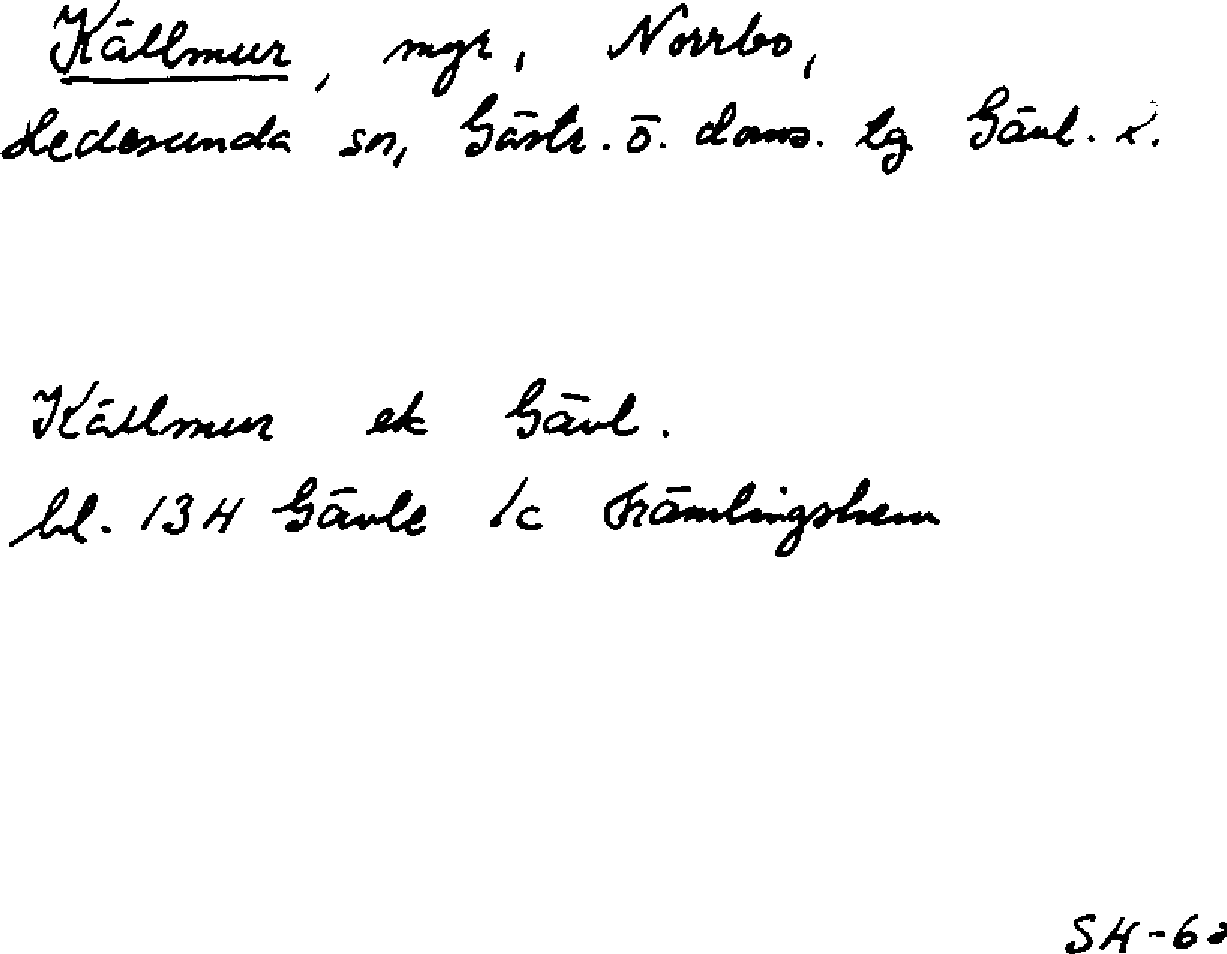 Källmur, myr, Norrbo,
Hedesunda sn, Gästr. ö. doms. tg Gävl. l.
Källmur ek Gävl.
bl. 134 Gävle 1c Främlingshem
SH-62